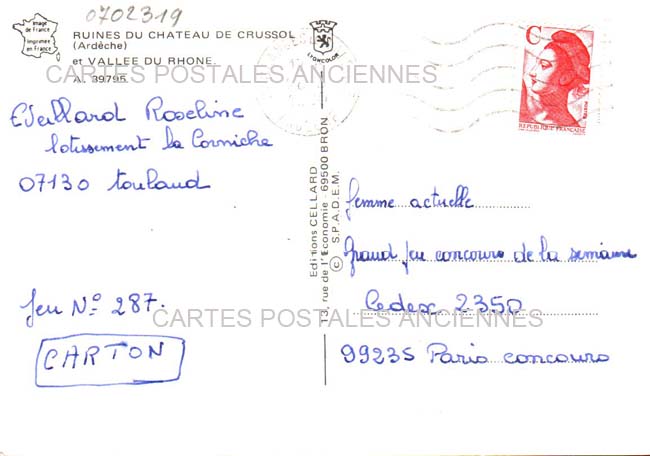 0702319
Image
de France
Imprimée
en France
RUINES DU CHATEAU DE CRUSSOL
(Ardèche)
et VALLEE DU RHONE.
A. 39795
LYONCOLOR
C
REPUBLIQUE FRANÇAISE
CARTES POSTALES ANCIENNES
Roseline
lotissement la Corniche
07130 toulaud
Editions CELLARD
13, rue de l'Economie - 69500 BRON
(C) S.P.A.D.E.M.
femme actuelle
Grand Jeu concours de la semaine
Cedex 2350
99235 Paris concours
Jeu N° 287.
CARTES POSTALES ANCIENNES
CARTON